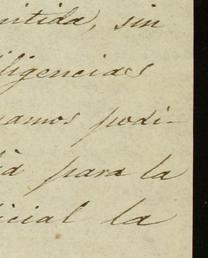 mitida, sin
ligencias
namos podi-
para la
icial la